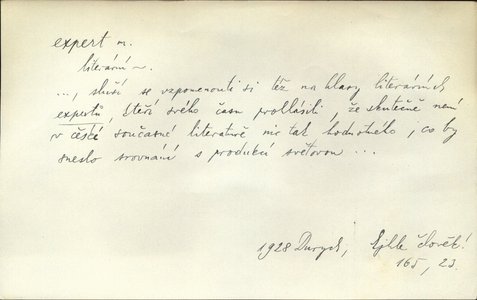 expert m.
literární ~.
..., sluší se vzpomenouti si též na hlasy literárních
expertů, kteří svého času prohlásili, že skutečně není
v české současné literatuře nic tak hodnotného, co by
sneslo srovnání s produkcí světovou ...
1928 Durych, Ejhle člověk!
165, 23.